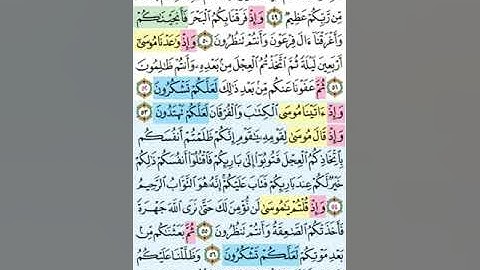 مِّن رَّبِّكُمْ عَظِيمٌ ۝٤٩ وَإِذْ فَرَقْنَا بِكُمُ الْبَحْرَ فَأَنجَيْنَاكُمْ
وَأَغْرَقْنَا آلَ فِرْعَوْنَ وَأَنتُمْ تَنظُرُونَ ۝٥٠ وَإِذْ وَاعَدْنَا مُوسَىٰ
أَرْبَعِينَ لَيْلَةً ثُمَّ اتَّخَذْتُمُ الْعِجْلَ مِن بَعْدِهِ وَأَنتُمْ ظَالِمُونَ
۝٥١ ثُمَّ عَفَوْنَا عَنكُم مِّن بَعْدِ ذَٰلِكَ لَعَلَّكُمْ تَشْكُرُونَ ۝٥٢
وَإِذْ آتَيْنَا مُوسَى الْكِتَابَ وَالْفُرْقَانَ لَعَلَّكُمْ تَهْتَدُونَ ۝٥٣
وَإِذْ قَالَ مُوسَىٰ لِقَوْمِهِ يَا قَوْمِ إِنَّكُمْ ظَلَمْتُمْ أَنفُسَكُم
بِاتِّخَاذِكُمُ الْعِجْلَ فَتُوبُوا إِلَىٰ بَارِئِكُمْ فَاقْتُلُوا أَنفُسَكُمْ ذَٰلِكُمْ
خَيْرٌ لَّكُمْ عِندَ بَارِئِكُمْ فَتَابَ عَلَيْكُمْ إِنَّهُ هُوَ التَّوَّابُ الرَّحِيمُ
۝٥٤ وَإِذْ قُلْتُمْ يَا مُوسَىٰ لَن نُّؤْمِنَ لَكَ حَتَّىٰ نَرَى اللَّهَ جَهْرَةً
فَأَخَذَتْكُمُ الصَّاعِقَةُ وَأَنتُمْ تَنظُرُونَ ۝٥٥ ثُمَّ بَعَثْنَاكُم مِّن
بَعْدِ مَوْتِكُمْ لَعَلَّكُمْ تَشْكُرُونَ ۝٥٦ وَظَلَّلْنَا عَلَيْكُمُ